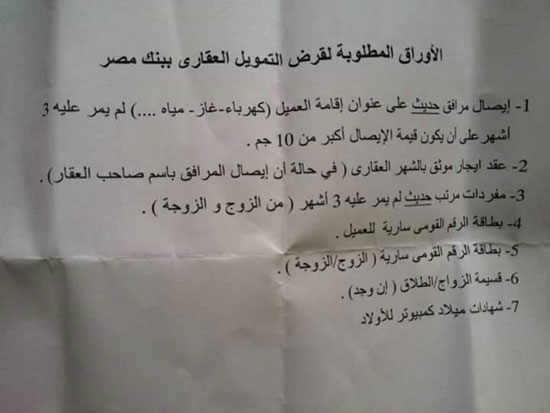 الأوراق المطلوبة لقرض التمويل العقارى ببنك مصر
1- إيصال مرافق حديث على عنوان إقامة العميل (كهرباء-غاز- مياه ....) لم يمر عليه 3
أشهر على أن يكون قيمة الإيصال أكبر من 10 جم .
2- عقد ايجار موثق بالشهر العقارى ( في حالة أن إيصال المرافق باسم صاحب العقار) .
3- مفردات مرتب حديث لم يمر عليه 3 أشهر ( من الزوج و الزوجة ) .
4- بطاقة الرقم القومى سارية للعميل .
5- بطاقة الرقم القومى سارية ( الزوج/الزوجة ) .
6- قسيمة الزواج/الطلاق ( إن وجد) .
7- شهادات ميلاد كمبيوتر للأولاد